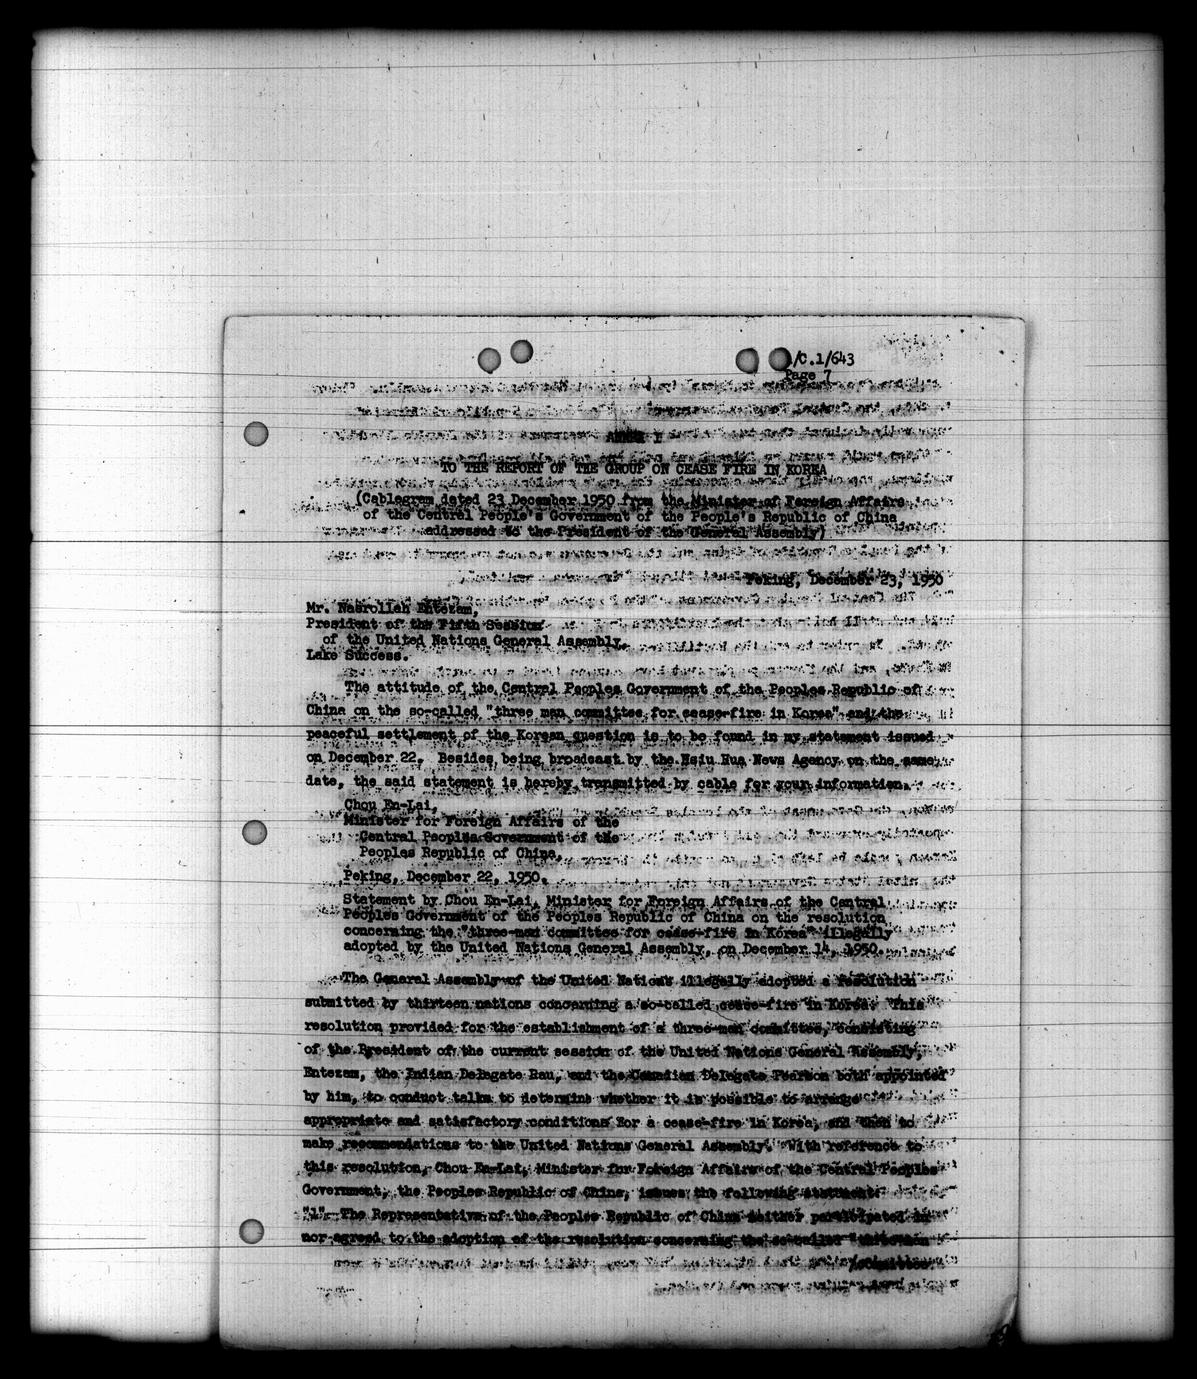 A/C.1/643
Page 7
ANNEX I
TO THE REPORT OF THE GROUP ON CEASE FIRE IN KOREA
(Cablegram dated 23 December 1950 from the Minister of Foreign Affairs
of the Central People's Government of the People's Republic of China
addressed to the President of the General Assembly)
Peking, December 23, 1950
Mr. Nasrollah Entezam,
President of the Fifth Session
of the United Nations General Assembly,
Lake Success.
The attitude of the Central Peoples Government of the Peoples Republic of
China on the so-called "three man committee for cease-fire in Korea" and the
peaceful settlement of the Korean question is to be found in my statement issued
on December 22. Besides being broadcast by the Hsiu Hua News Agency on the same
date, the said statement is hereby transmitted by cable for your information.
Chou En-Lai,
Minister for Foreign Affairs of the
Central Peoples Government of the
Peoples Republic of China,
Peking, December 22, 1950.
Statement by Chou En-Lai, Minister for Foreign Affairs of the Central
Peoples Government of the Peoples Republic of China on the resolution
concerning the "three-man committee for cease-fire in Korea" illegally
adopted by the United Nations General Assembly, on December 14, 1950.
The General Assembly of the United Nations illegally adopted a resolution
submitted by thirteen nations concerning a so-called cease-fire in Korea. This
resolution provided for the establishment of a three-man committee, consisting
of the President of the current session of the United Nations General Assembly,
Entezam, the Indian Delegate Rau, and the Canadian Delegate Pearson both appointed
by him, to conduct talks to determine whether it is possible to arrange
appropriate and satisfactory conditions for a cease-fire in Korea, and then to
make recommendations to the United Nations General Assembly. With reference to
this resolution, Chou En-Lai, Minister for Foreign Affairs of the Central Peoples
Government, the Peoples Republic of China, issues the following statement:
"1". The Representative of the Peoples Republic of China neither participated in
nor agreed to the adoption of the resolution concerning the so-called "three-man
/committee